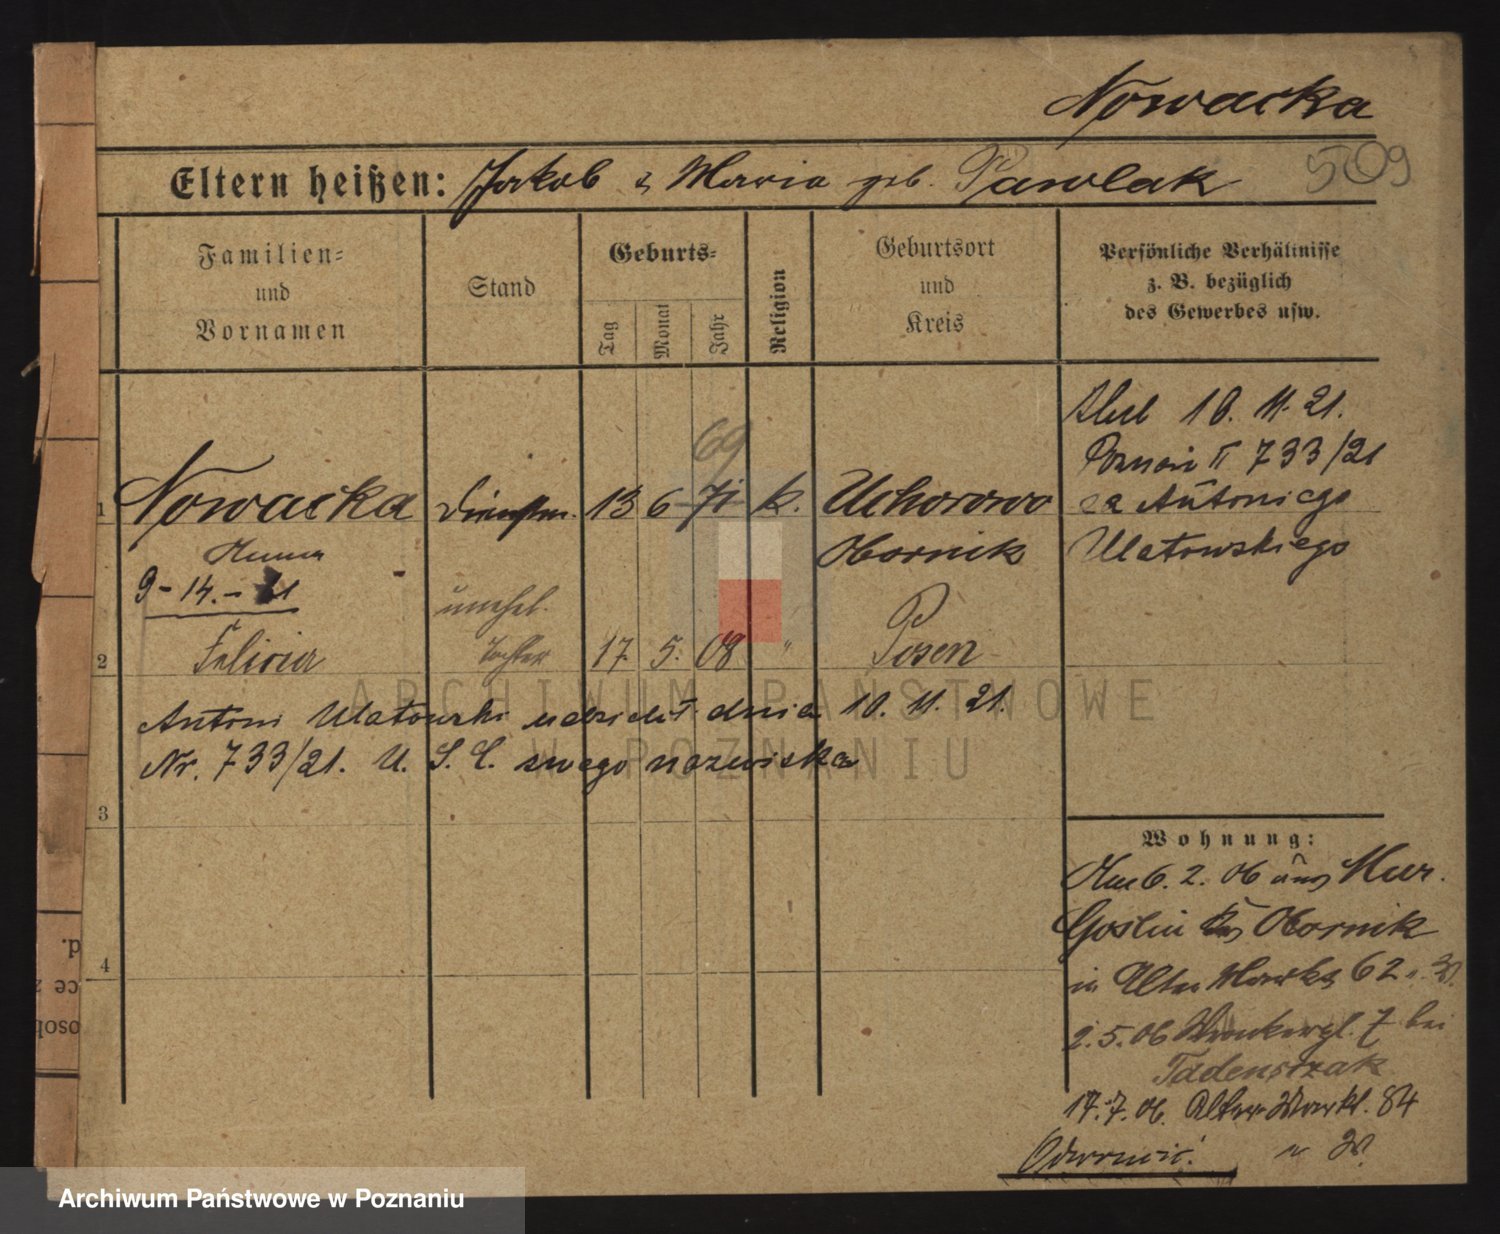 Nowacka
509
Eltern heißen: Jakob & Maria geb. Pawlak
Familien-
und
Vornamen
Stand
Geburts-
Tag
Monat
Jahr
Religion
Geburtsort
und
Kreis
Persönliche Verhältnisse
z. B. bezüglich
des Gewerbes usw.
Ślub 10. 11. 21.
Poznań II 733/21
za Antoniego
Ulatowskiego
69
1 Nowacka 13 6 71 k. Uchorowo
Obornik
9-14.-21
unehel.
2 Felicia Tochter 17. 5. 08 " Posen
Antoni Ulatowski udzielił dnia 10. 11. 21.
Nr. 733/21. U. S. C. swego nazwiska
3
4
Wohnung:
6. 2. 06 aus Mur.
Goslin Obornik
in Alter Markt 62
2. 5. 06 7 bei
Tadenszak
17. 7. 06. Alter Markt. 84
Odwrócić!
d.
ce z
osob
ARCHIWUM PAŃSTWOWE
W POZNANIU
Archiwum Państwowe w Poznaniu